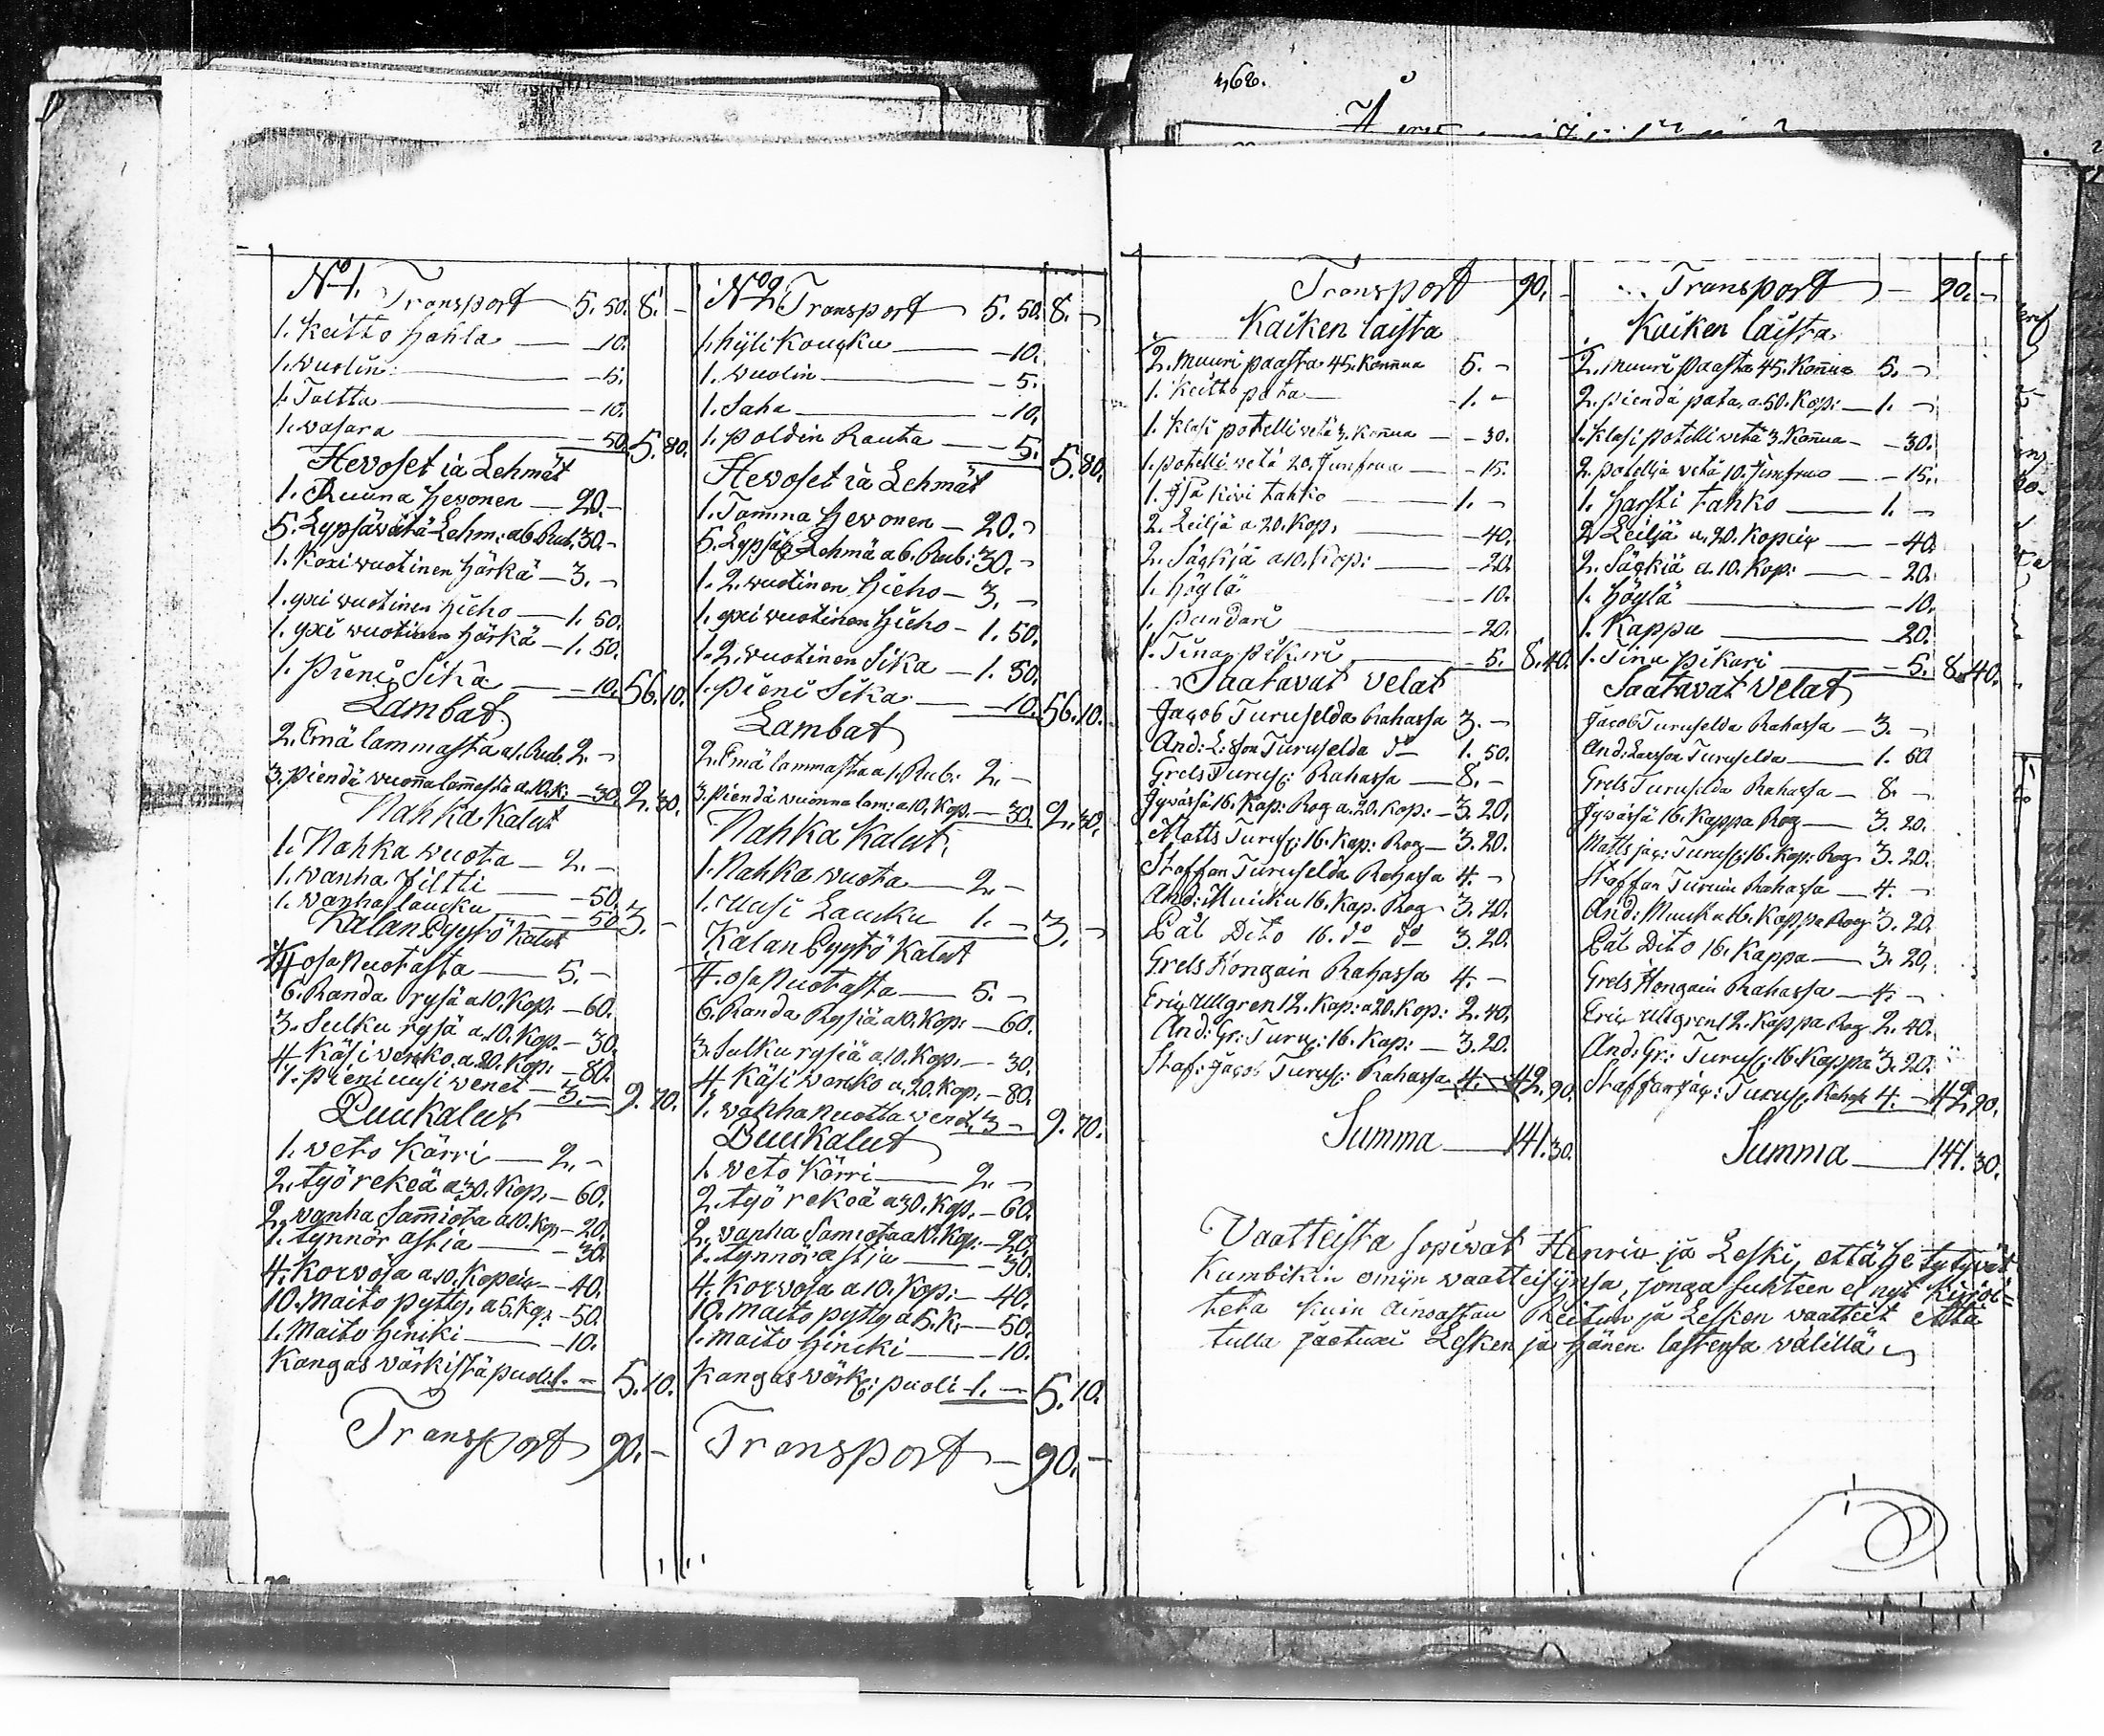 No 1. Transport 5. 50. 8. -
1. Keitto hahla - 10.
1. vuolin - 5.
1. Taltta - 10.
1. vasara - 50. 5. 80.
Hevoset ia Lehmät
1. Ruuna hevonen - 20. -
5. Lypsävätä Lehm: a 6. Rub. 30. -
1. Kaxi wuotinen härkä - 3. -
1. yxi wuotinen hieho - 1. 50.
1. yxi wuotinen härkä - 1. 50.
1. pieni Sika - 10. 56. 10.
Lambat
2. Emä lammasta a 1. Rub. 2. -
3. piendä vuonna lammasta a 10. K: - 30. 2. 30.
Nahka Kalut
1. Nahka wuota - 2. -
1. wanha filtti - 50.
1. wanha laucku - 50. 3. -
Kalan Pyytö Kalut
4. osa Nuotasta - 5. -
6. Randa rysä a 10. Kop: - 60.
3. Sulku rysä a. 10. Kop. - 30.
4. Käsi verko. a. 20. Kop: - 80.
1. pieni uusi venet - 3. - 9. 70.
Puukalut
1. veto Kärri - 2. -
2. työ rekeä a 30. Kop. - 60.
2. vanha Samiota a 10. Kop - 20.
1. tynnör astia - 30.
4. Korvoja a 10. Kopeix - 40.
10. Maito pytty. a 5. Kop. - 50.
1. Maito hiniki - 10.
Kangas värkistä puoli 1. - 5. 10.
Transport 90. -
No 2 Transport 5. 50. 8. -
1. hyli Koucku - 10.
1. Vuolin - 5.
1. Saha - 10.
1. poldin Rauta - 5. 5. 80.
Hevoset ia Lehmät
1. Tamma hevonen - 20. -
5. Lypsävä Lehmä a 6. Rub: 30. -
1. 2. wuotinen hieho - 3. -
1. yxi wuotinen hieho - 1. 50.
1. 2. wuotinen Sika - 1. 50.
1. pieni Sika - 10. 56. 10.
Lambat
2. Emä lammasta a 1. Rub: 2. -
3. piendä vuonna lam: a 10. Kop. - 30. 2. 30.
Nahka Kalut
1. Nahka wuota - 2. -
1. uusi Laucku 1. - 3. -
Kalan Pyytö Kalut
4. osa Nuotasta - 5. -
6. Randa Rysiä a 10. Kop: - 60.
3. Sulku rysiä a. 10. Kop. - 30.
4. Käsi verko a. 20. Kop. - 80.
1. vanha nuotta venet 3 - 9. 70.
Puukalut
1. veto Kärri - 2. -
2. työ rekeä a 30. Kop. - 60.
2. vanha Samiota a 10. Kop: - 20.
1. tynnör astia - 30.
4. Korvoja a 10. Kop: - 40.
10. Maito pytty a 5. K. - 50.
1. Maito hiniki - 10.
Kangas värk: puoli 1. - 5. 10.
Transport - 90. -
362.
Transport 90. -
Kaiken laista
2. muuri paasta 45. Kannua 5. -
1. Keitto pata - 1. -
1. Klasi potelli vetä 3. Kannua - 30.
1. potelli vetä 20. Jumfrua - 15.
1. Iso kivi tahko - 1. -
2. Leiljä a 20. Kop. - 40.
2. Säckjä a 10. Kop: - 20.
1. höylä - 10.
1. pundari - 20.
1. Tina pikari - 5. 8. 40.
Saatavat velat
Jacob Turuselda Rahassa 3. -
And: L:sson Turuselda do 1. 50.
Grels Turus: Rahassa - 8. -
Jyvässä 16. Kap: Rog a. 20. Kop: - 3. 20.
Matts Turus: 16. Kap: Rog - 3. 20.
Staffan Turuselda Rahassa 4. -
And: Muicku 16. Kap. Rog - 3. 20.
Pål Dito 16. do do 3. 20.
Grels Kongain Rahassa 4. -
Eric Ullgren 12. Kap: a 20. Kop: 2. 40.
And: Gr: Turus: 16. Kap: - 3. 20.
Staf: Jacob Turus: Rahassa 4. - 42. 90.
Summa - 141. 30.
Transport - 90. -
Kaiken laista
2. muuri paasta 45. Kannua 5. -
2. piendä pata, a 50. Kop: - 1. -
1. klasi potelli vetä 3. Kannua - 30.
2. potellja vetä 10. Jumfruo - 15.
1. harsti tahko - 1. -
2 Leiljä a. 20. Kopeix - 40.
2. Säckiä a. 10. Kop: - 20.
1. höylä - 10.
1. Kappa - 20.
1. Tina pikari - 5. 8. 40.
Saatavat velat
Jacob Turuselda Rahassa - 3. -
And: Larsson Turuselda - 1. 50
Grels Turuselda Rahassa - 8. -
Jyvässä 16. Kappa Rog - 3. 20.
Matts Jac: Turus: 16. Kap: Rog 3. 20.
Staffan Turuin Rahassa - 4. -
And: Muicku 16. Kappa Rog 3. 20.
Pål Dito 16. Kappa - 3. 20.
Grels Kongain Rahassa - 4. -
Eric Ullgren 12. Kappa Rog 2. 40.
And: Gr: Turus: 16. Kappa 3. 20.
Staffan Jac: Turus: Rahas 4. - 42. 90.
Summa - 141. 30.
Vaatteista sopivat Henric ja Leski, että he tytyvät
Kumbikin omijn vaatteisijnsa, jonga suhteen ei nyt Kirjoi=
teta kuin ainoastan Reitun ja Lesken vaatteet että
tulla jaetuxi Lesken ja hänen lastensa välillä